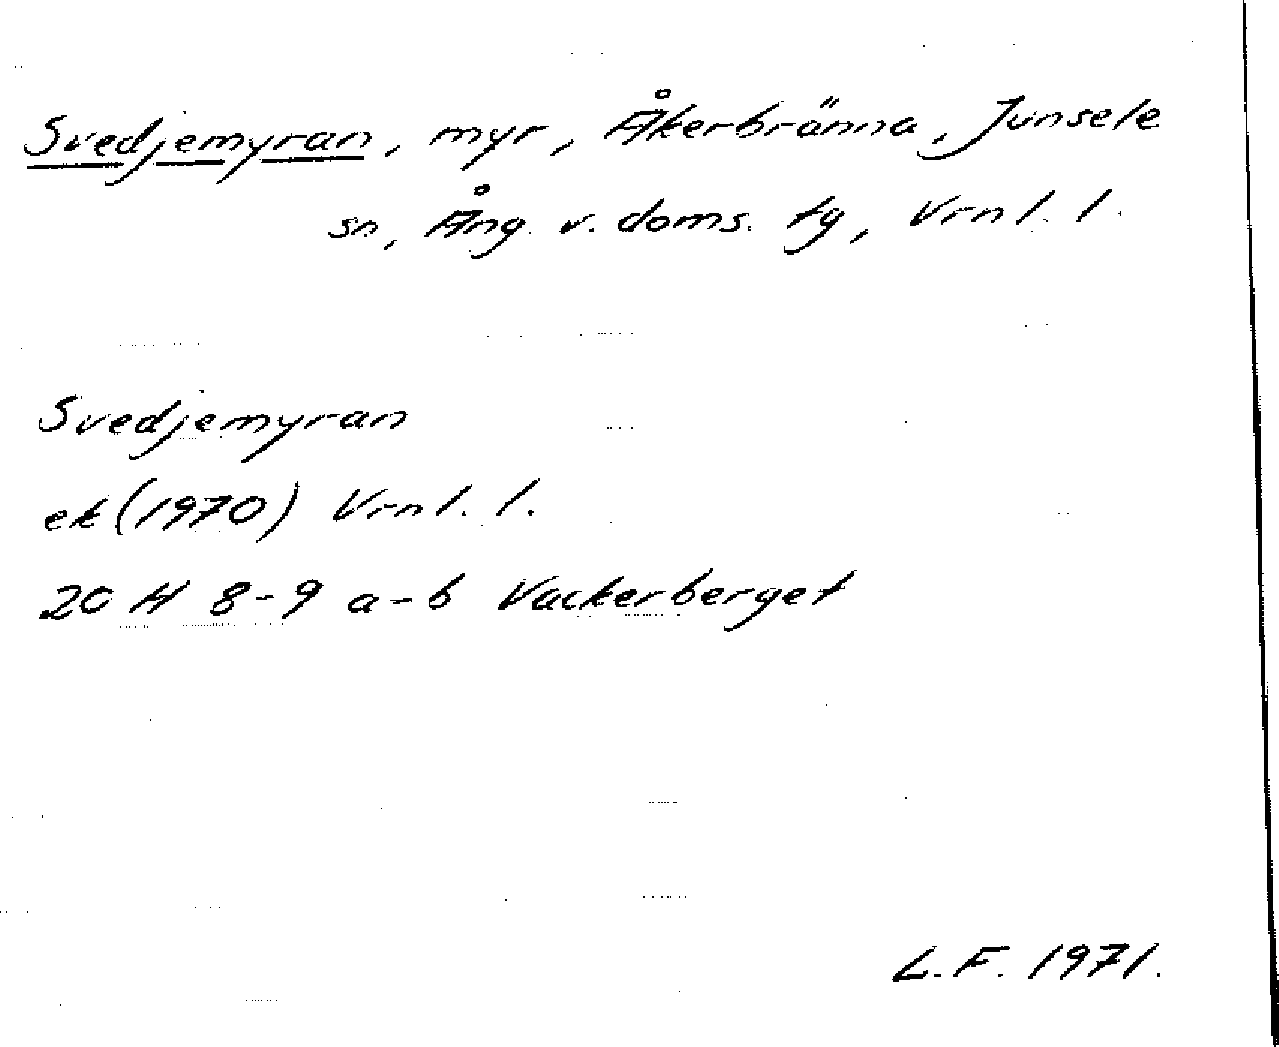 Svedjemyran, myr, Åkerbränna, Junsele
sn, Ång. v. doms. tg, Vrnl. l.
Svedjemyran
ek (1970) Vrnl. l.
20 H 8-9 a-b Vackerberget
L. F. 1971.